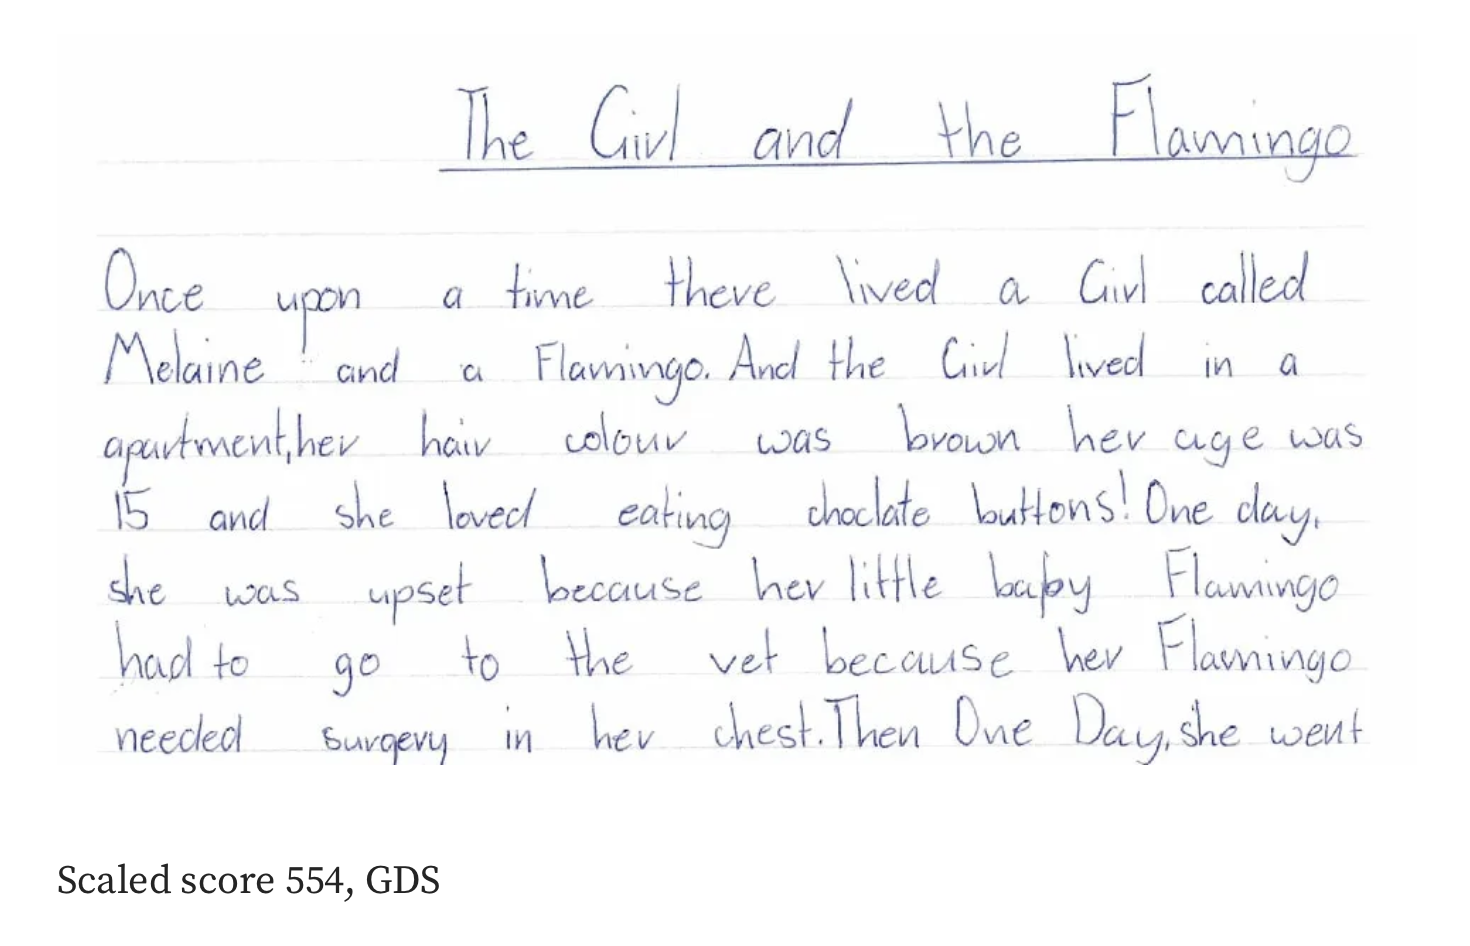 The Girl and the Flamingo
Once upon a time there lived a Girl called
Melaine and a Flamingo. And the Girl lived in a
apartment,her hair colour was brown her age was
15 and she loved eating choclate buttons! One day,
she was upset because her little baby Flamingo
had to go to the vet because her Flamingo
needed surgery in her chest. Then One Day, she went
Scaled score 554, GDS